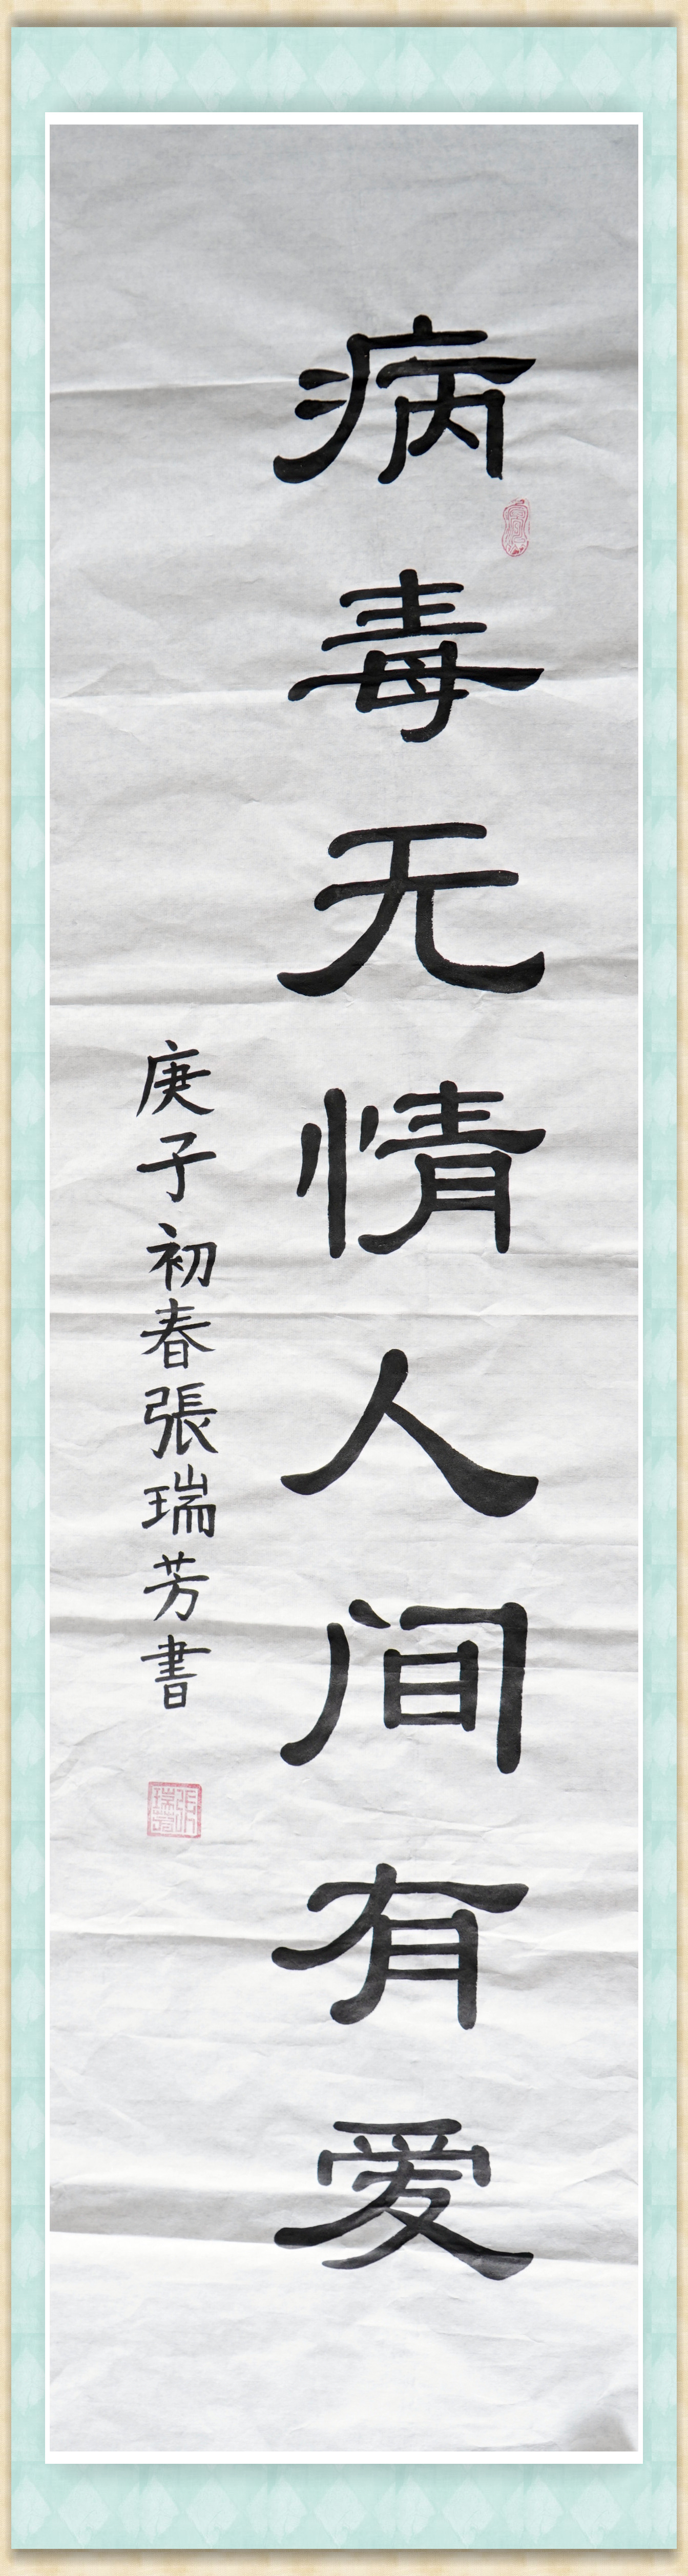 病毒无情人间有爱
庚子初春張瑞芳書